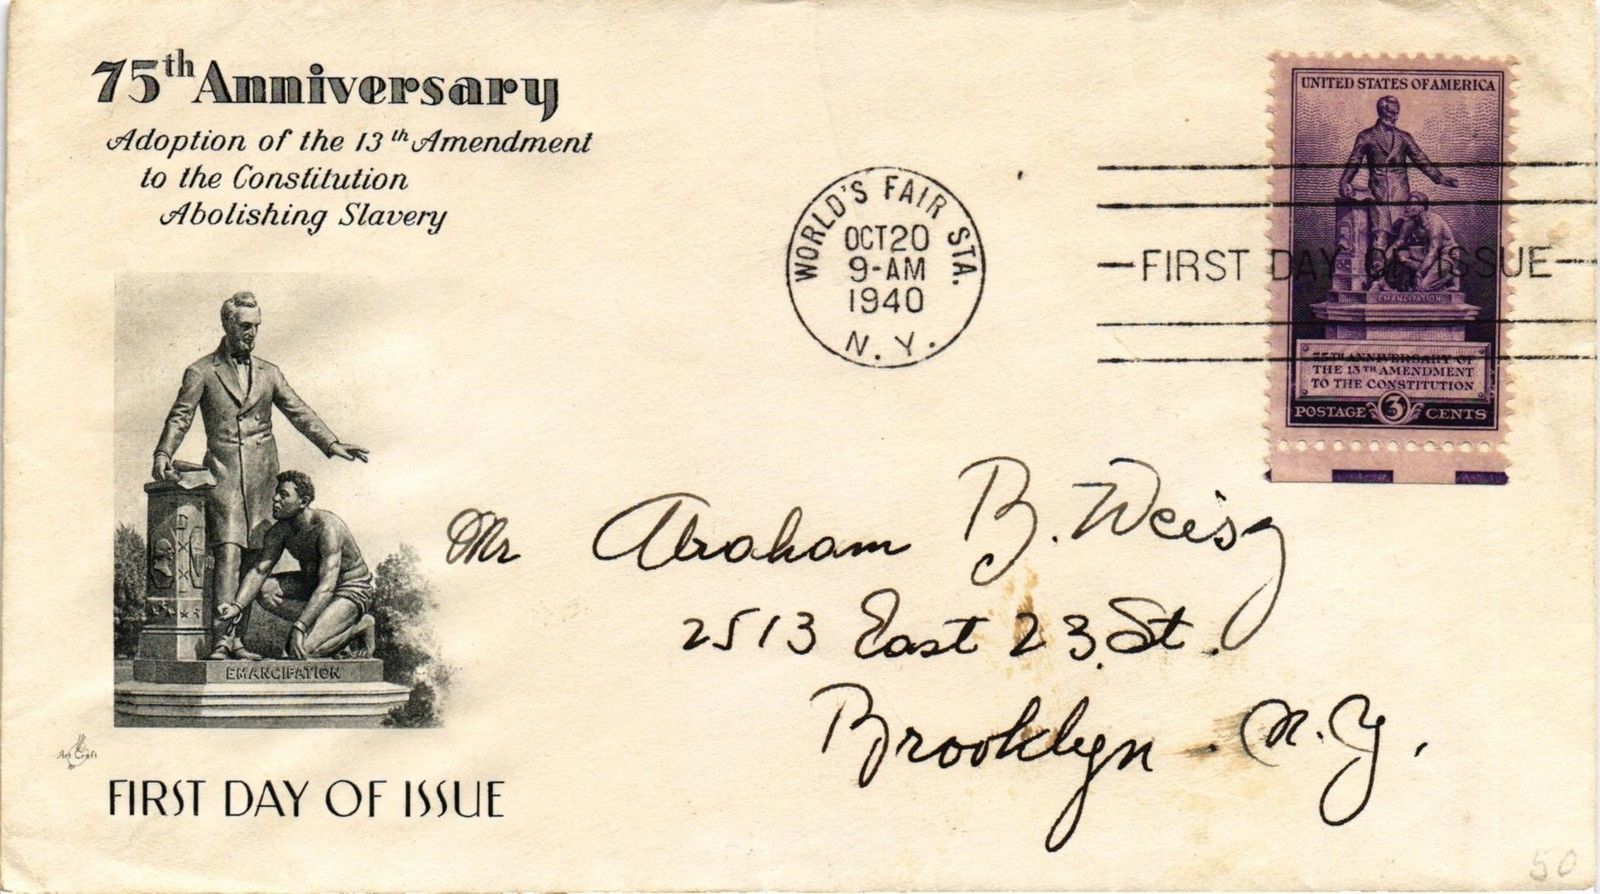 75th Anniversary
Adoption of the 13th Amendment
to the Constitution
Abolishing Slavery
WORLD'S FAIR STA.
OCT 20
9-AM
1940
N.Y.
UNITED STATES OF AMERICA
FIRST DAY OF ISSUE
EMANCIPATION
75TH ANNIVERSARY OF
THE 13TH AMENDMENT
TO THE CONSTITUTION
POSTAGE 3 CENTS
Mr Abraham B. Weisz
2513 East 23 St.
Brooklyn. N.Y.
EMANCIPATION
Art Craft
FIRST DAY OF ISSUE
50